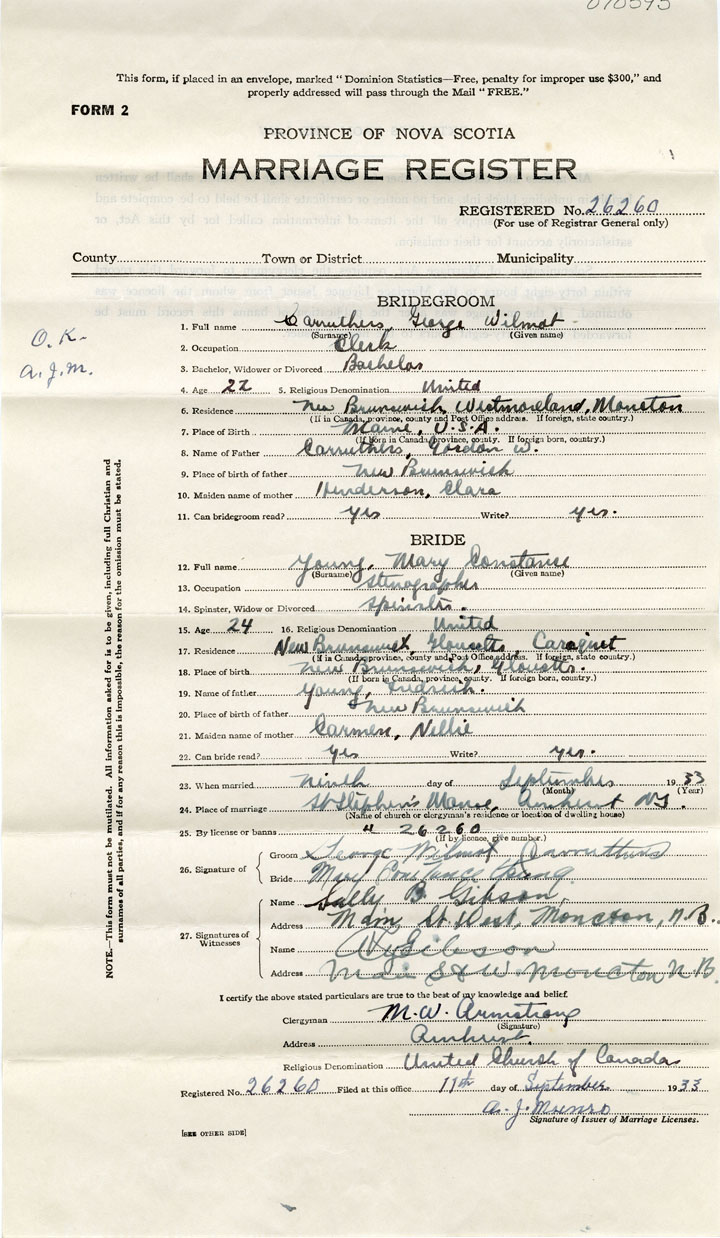 070595
This form, if placed in an envelope, marked "Dominion Statistics—Free, penalty for improper use $300," and
properly addressed will pass through the Mail "FREE."
FORM 2
PROVINCE OF NOVA SCOTIA
MARRIAGE REGISTER
REGISTERED No. 26260
(For use of Registrar General only)
County Town or District Municipality
O.K.
a.J.M.
NOTE.—This form must not be mutilated. All information asked for is to be given, including full Christian and
surnames of all parties, and if for any reason this is impossible, the reason for the omission must be stated.
BRIDEGROOM
1. Full name Carruthers, George Wilmot
(Surname) (Given name)
2. Occupation Clerk
3. Bachelor, Widower or Divorced Bachelor
4. Age 22 5. Religious Denomination United
6. Residence New Brunswick, Westmoreland, Moncton
(If in Canada, province, county and Post Office address. If foreign, state country.)
7. Place of Birth Maine, U.S.A.
(If born in Canada, province, county. If foreign born, country.)
8. Name of Father Carruthers, Gordon W.
9. Place of birth of father New Brunswick
10. Maiden name of mother Henderson, Clara
11. Can bridegroom read? yes Write? yes.
BRIDE
12. Full name Young, Mary Constance
(Surname) (Given name)
13. Occupation Stenographer
14. Spinster, Widow or Divorced Spinster.
15. Age 24 16. Religious Denomination United
17. Residence New Brunswick, Gloucester, Caraquet
(If in Canada, province, county and Post Office address. If foreign, state country.)
18. Place of birth New Brunswick, Gloucester.
(If born in Canada, province, county. If foreign born, country.)
19. Name of father Young, Fredrick.
20. Place of birth of father New Brunswick
21. Maiden name of mother Carmen, Nellie
22. Can bride read? yes Write? yes.
23. When married ninth day of September 1933
(Month) (Year)
24. Place of marriage St Stephen's Manse, Amherst N.S.
(Name of church or clergyman's residence or location of dwelling house)
25. By license or banns " 26260
(If by licence, give number.)
26. Signature of
Groom George Wilmot Carruthers
Bride Mary Constance Young.
27. Signatures of Witnesses
Name Sally B Gibson,
Address Main St. West, Moncton, N.B.
Name Gibson
Address Main St W Moncton N.B.
I certify the above stated particulars are true to the best of my knowledge and belief.
Clergyman M.W. Armstrong
(Signature)
Address Amherst.
Religious Denomination United Church of Canada
Registered No. 26260 Filed at this office 11th day of September 1933
a.J. Munro
Signature of Issuer of Marriage Licenses.
[SEE OTHER SIDE]